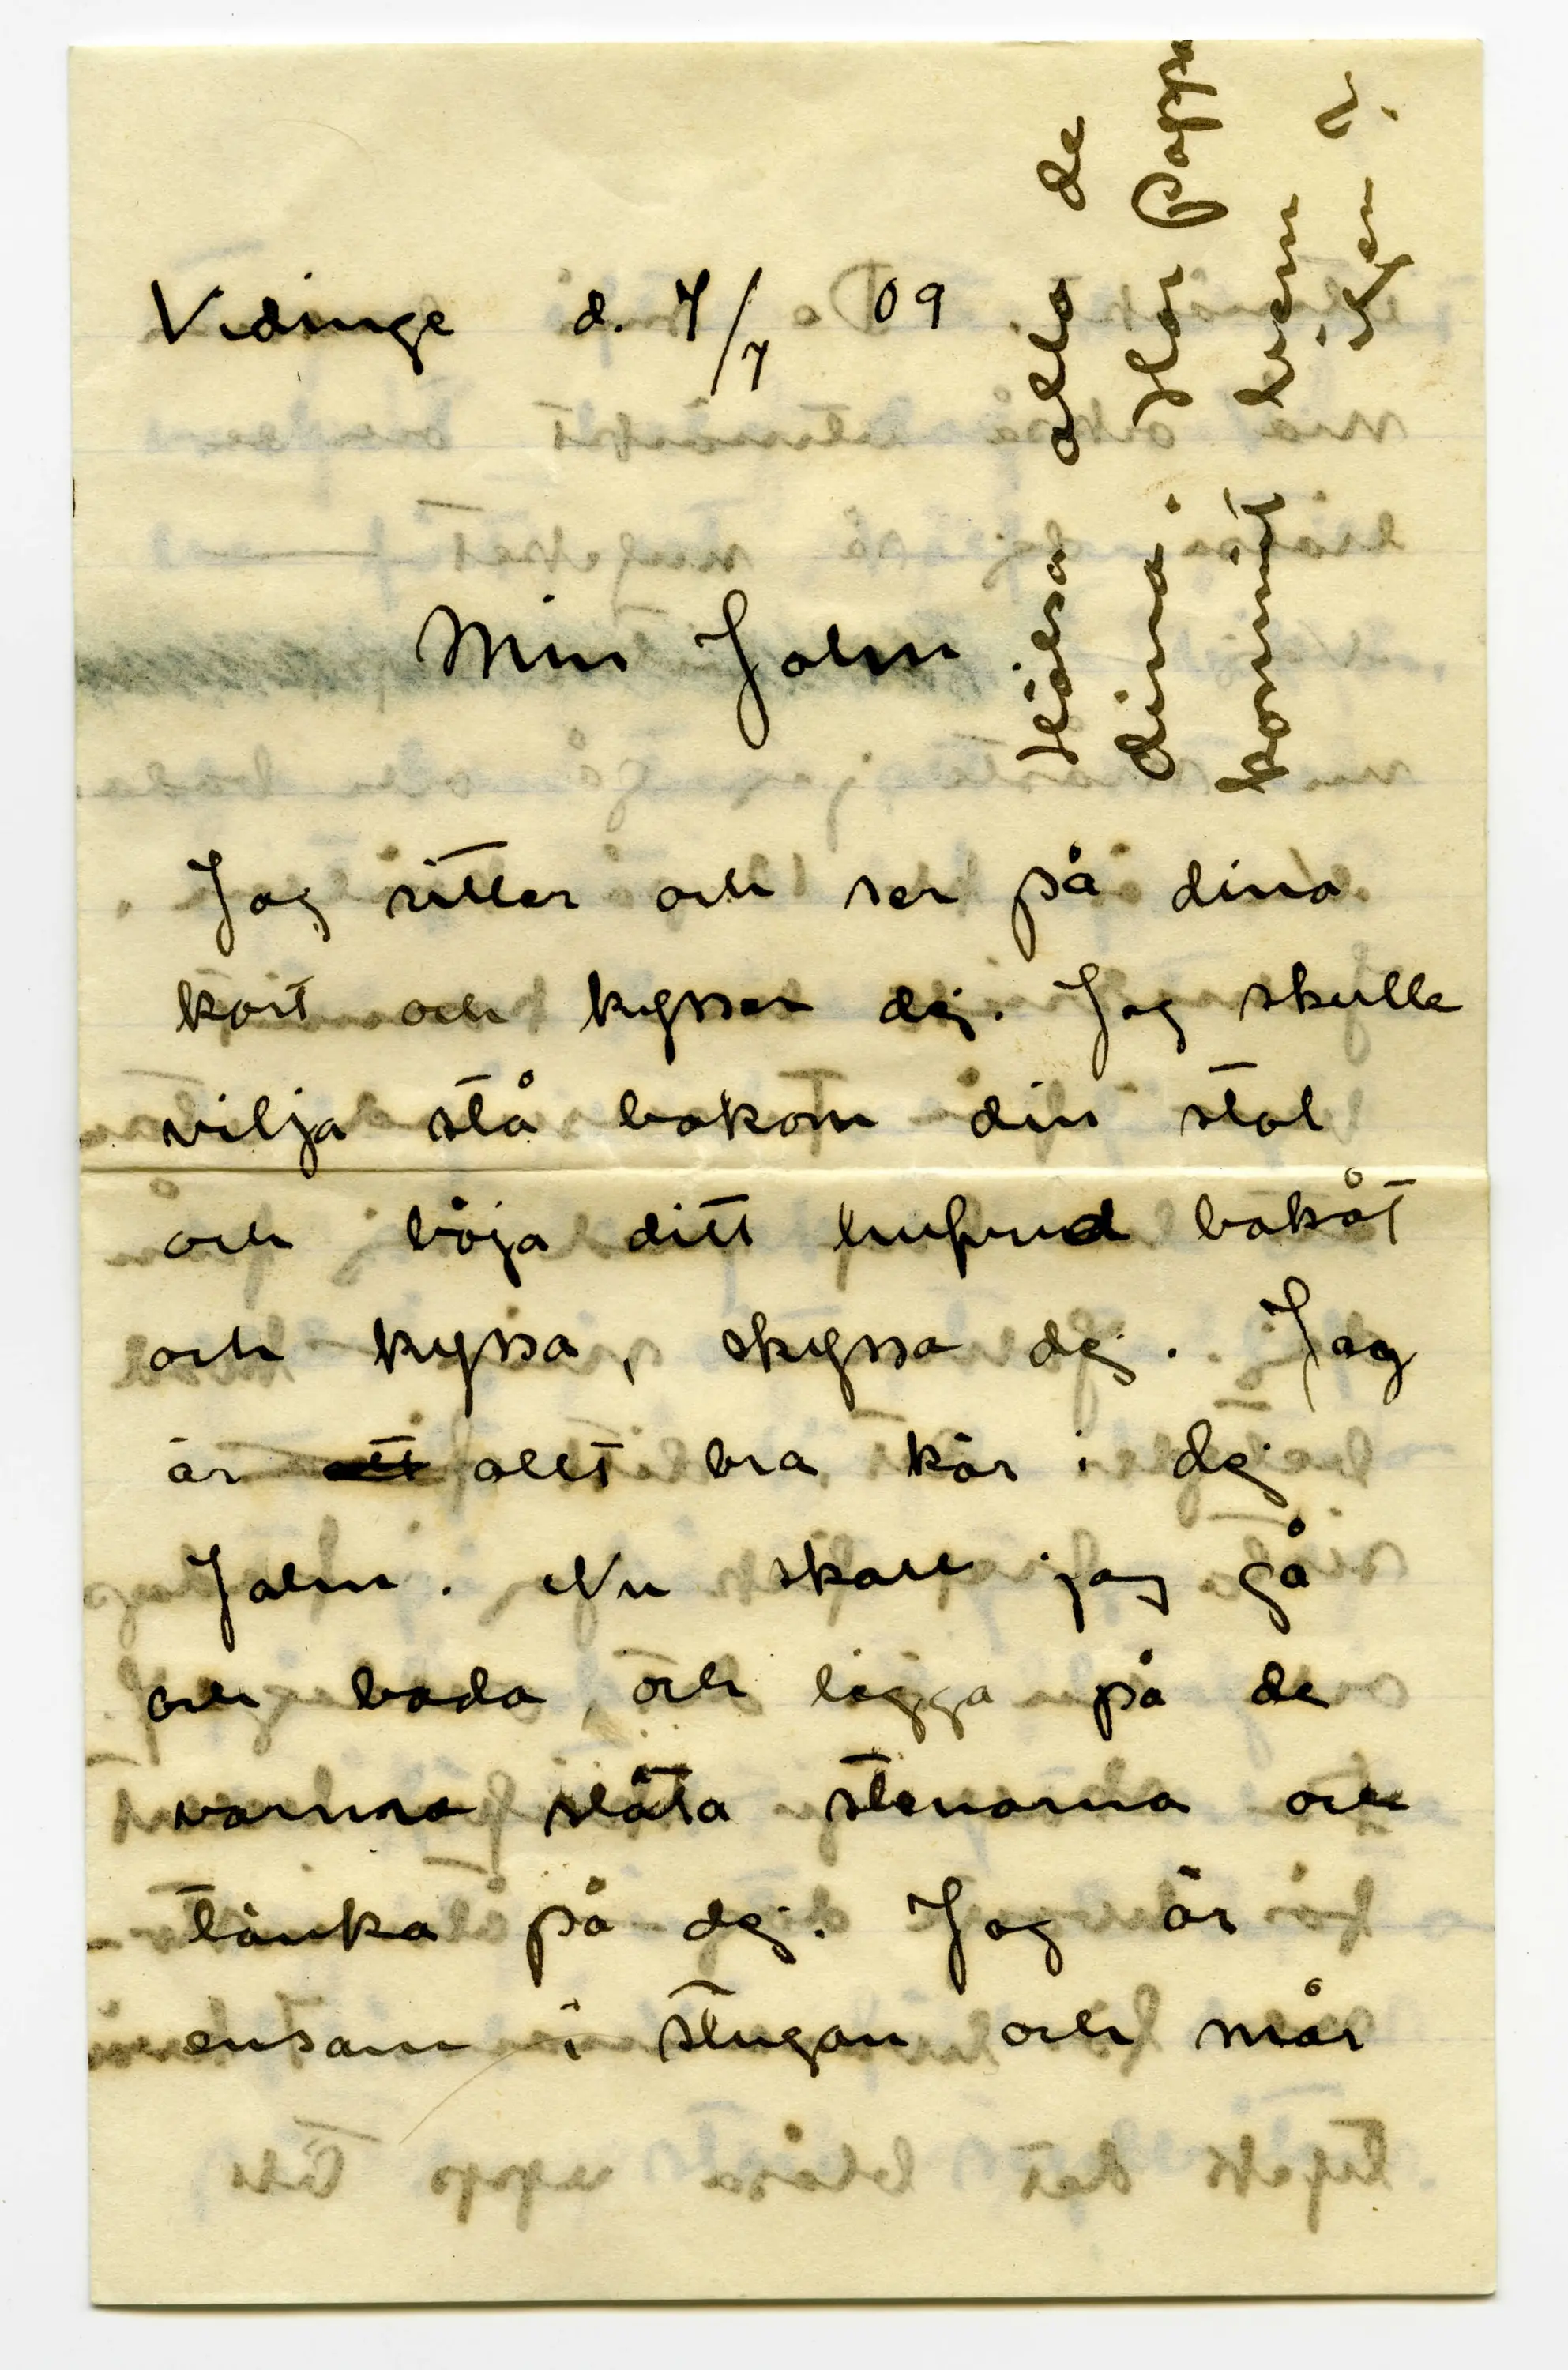 Vidinge d. 7/7 09
Min John
Jag sitter och ser på dina
kort och kysser dej. Jag skulle
vilja stå bakom din stol
och böja ditt hufvud bakåt
och kyssa, skyssa dej. Jag
är allt bra kär i dej
John. Nu skall jag gå
och bada och ligga på de
varma släta stenarna och
tänka på dej. Jag är
ensam i stugan och mår
Hälsa alla de
dina. Har Pappa
kommit hem
än?